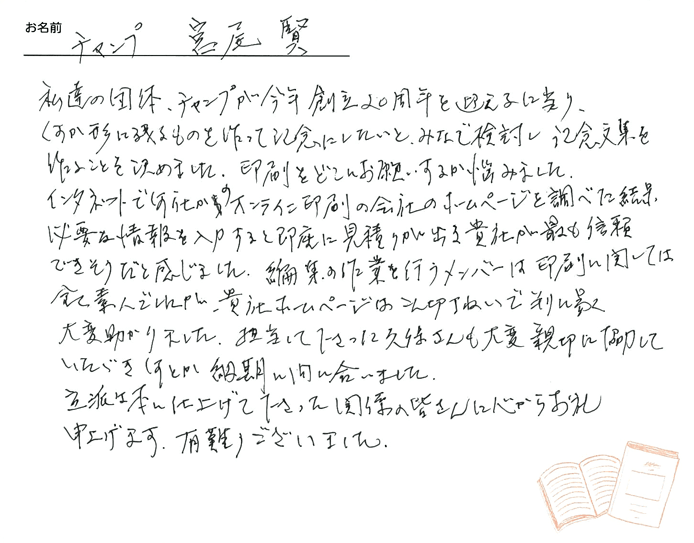 お名前 チャンプ 宮尾 賢
私達の団体、チャンプが今年創立20周年を迎えるに当り、
何か形に残るものを作って記念にしたいと、みなで検討し記念文集を
作ることを決めました。印刷をどこにお願いするか悩みました。
インターネットで何社かのオンライン印刷の会社のホームページを調べた結果
必要な情報を入力すると即座に見積りが出る貴社が最も信頼
できそうだと感じました。編集の作業を行うメンバーは印刷に関しては
全て素人でしたが、貴社ホームページはこん切ていねいで判り易く
大変助かりました。担当して下さった久保さんも大変親切に協力して
いただき何とか納期に間に合いました。
立派な本に仕上げて下さった関係の皆さんに心からお礼
申上げます。有難うございました。